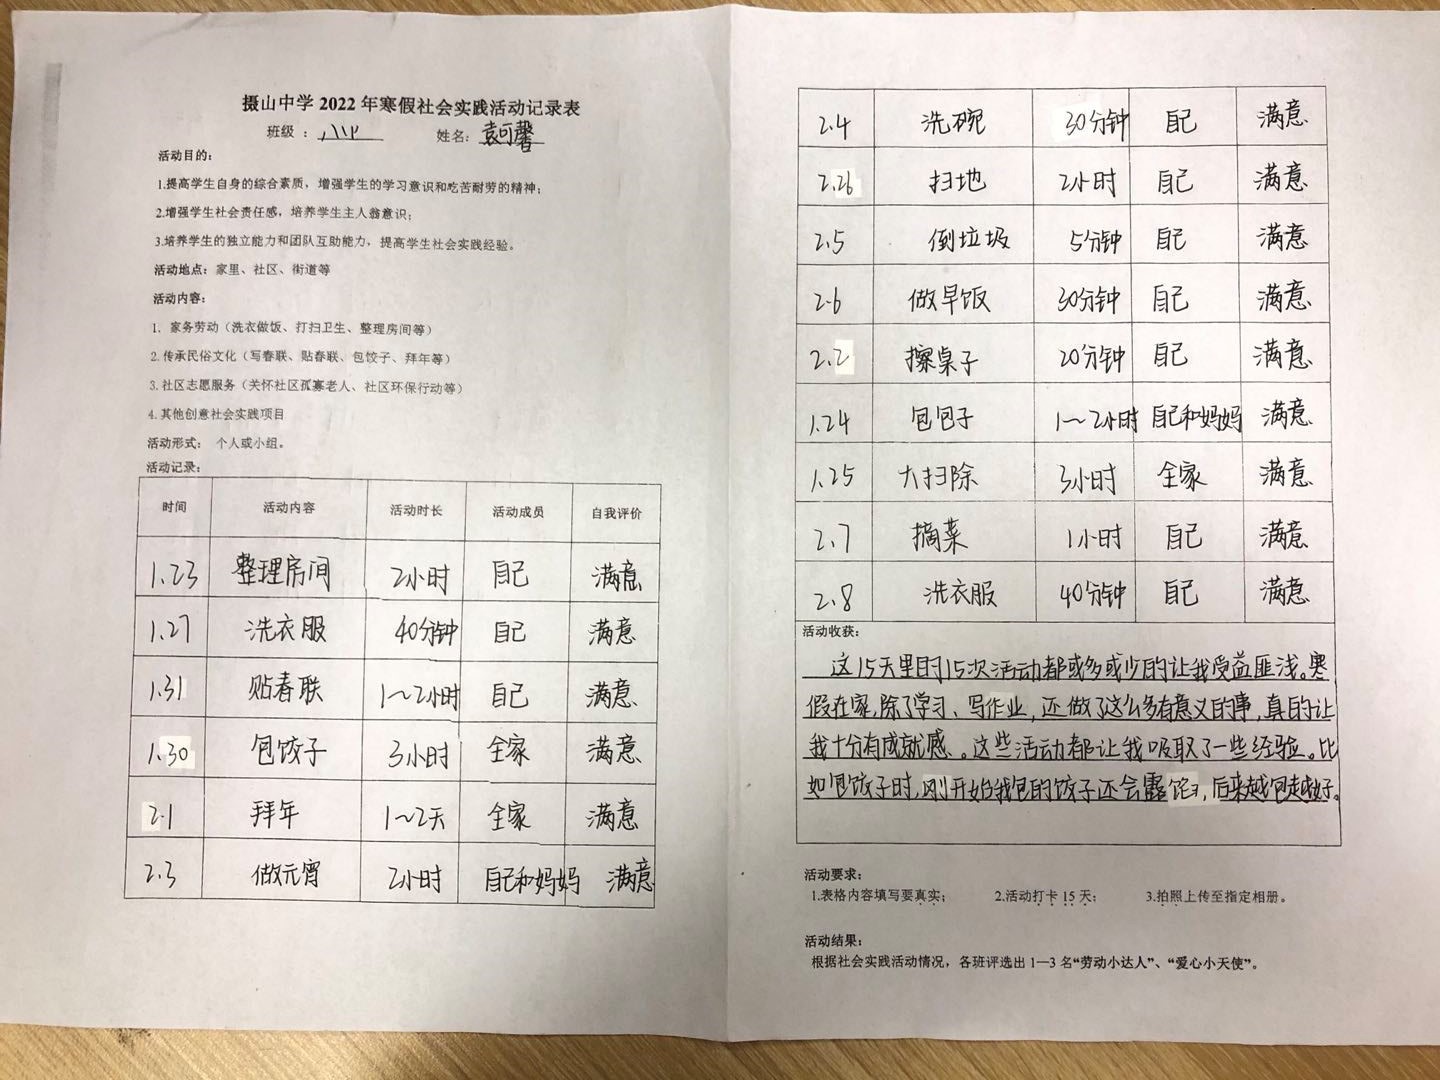 摄山中学 2022 年寒假社会实践活动记录表
班级：	姓名：袁可馨
活动目的：
1.提高学生自身的综合素质，增强学生的学习意识和吃苦耐劳的精神；
2.增强学生社会责任感，培养学生主人翁意识；
3.培养学生的独立能力和团队互助能力，提高学生社会实践经验。
活动地点：家里、社区、街道等
活动内容：
1. 家务劳动（洗衣做饭、打扫卫生、整理房间等）
2.传承民俗文化（写春联、贴春联、包饺子、拜年等）
3.社区志愿服务（关怀社区孤寡老人、社区环保行动等）
4.其他创意社会实践项目
活动形式： 个人或小组。
活动记录：
时间 活动内容 活动时长 活动成员 自我评价
1.23 整理房间 2小时 自己 满意
1.27 洗衣服 40分钟 自己 满意
1.31 贴春联 1～2小时 自己 满意
1.30 包饺子 3小时 全家 满意
2.1 拜年 1～2天 全家 满意
2.3 做元宵 2小时 自己和妈妈 满意
2.4 洗碗 30分钟 自己 满意
2.26 扫地 2小时 自己 满意
2.5 倒垃圾 5分钟 自己 满意
2.6 做早饭 30分钟 自己 满意
2.2 擦桌子 20分钟 自己 满意
1.24 包包子 1～2小时 自己和妈妈 满意
1.25 大扫除 3小时 全家 满意
2.7 摘菜 1小时 自己 满意
2.8 洗衣服 40分钟 自己 满意
活动收获：
这15天里的15次活动都或多或少的让我受益匪浅。寒
假在家,除了学习、写作业,还做了这么多有意义的事,真的让
我十分有成就感。这些活动都让我吸取了一些经验。比
如包饺子时,刚开始我包的饺子还会露馅,后来越包越好。
活动要求：
1.表格内容填写要真实； 2.活动打卡 15 天； 3.拍照上传至指定相册。
活动结果：
根据社会实践活动情况，各班评选出 1—3 名“劳动小达人”、“爱心小天使”。